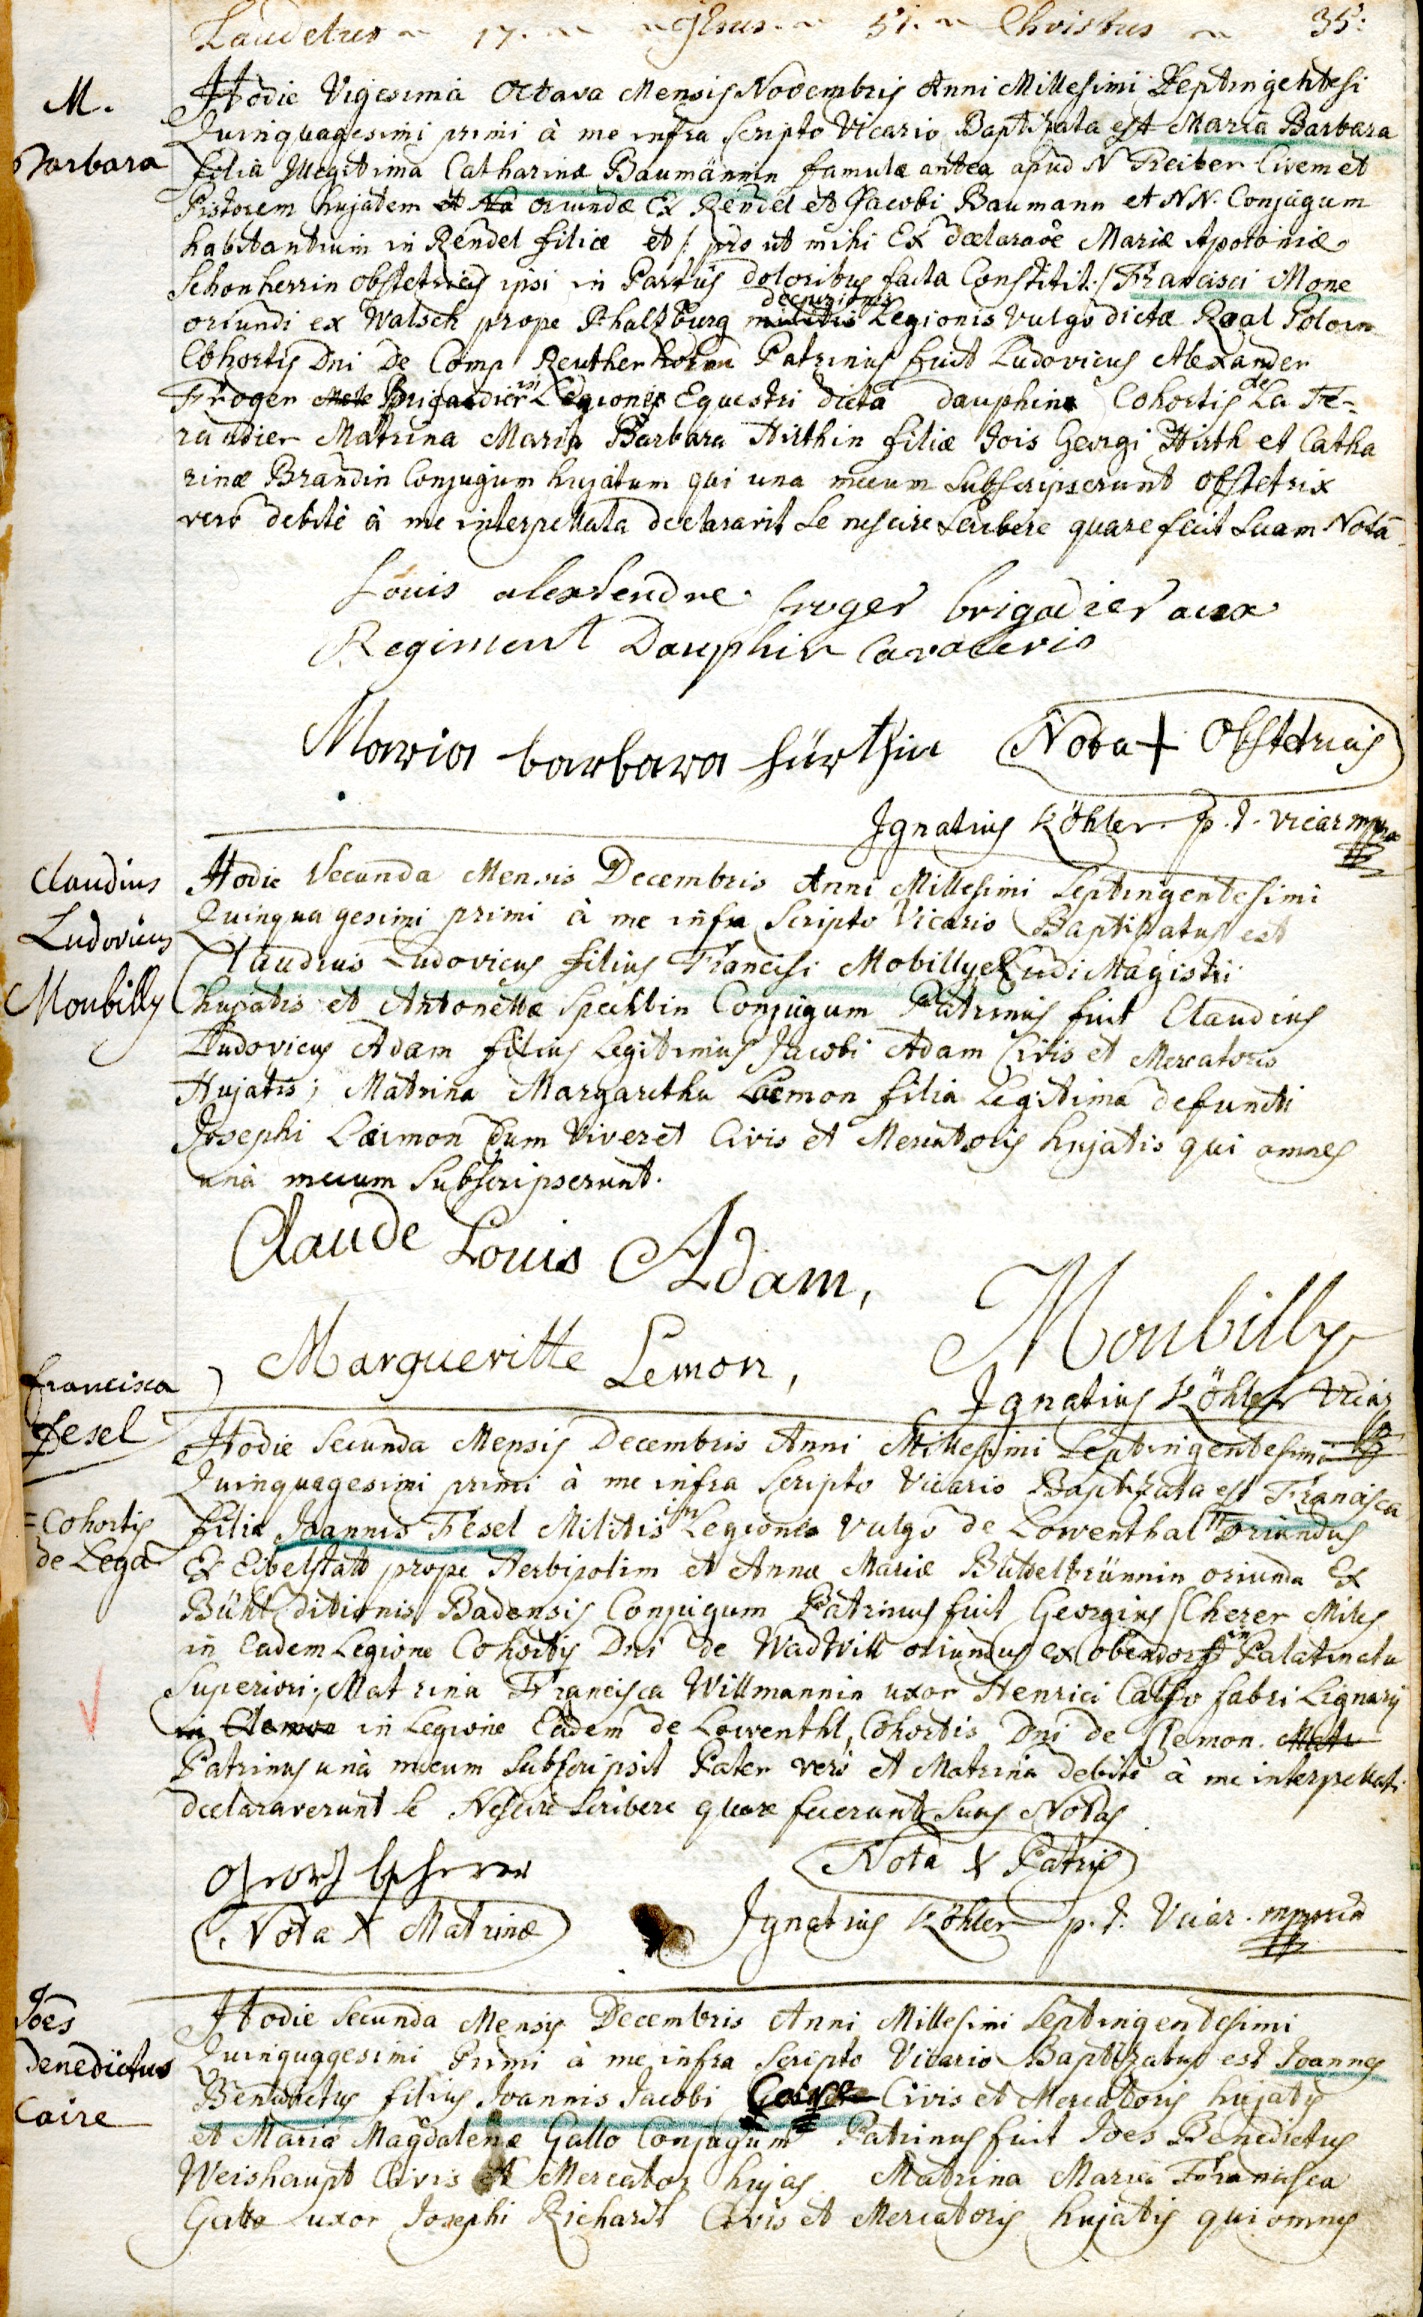 Laudetur 17. Jesus 51. Christus 35.
M.
Barbara
Hodie Vigesima Octava Mensis Novembris Anni Millesimi Septingentesi
Quinquagesimi primi à me infra Scripto Vicario Baptizata est Maria Barbara
filia Illegitima Catharinæ Baumännin famulæ antea apud N Treiber Civem et
Pistorem hujatem et Na oriundæ Ex Rendel et Jacobi Baumann et N.N. Conjugum
habitantium in Rendel filiæ et /: pro ut mihi Ex declaraõe Mariæ Apoloniæ
Schonherrin obstetricis ipsi in Partûs doloribus facta Constitit :/ Francisci Mone
decurionis
oriundi ex Walsch prope Phaltzburg militis Legionis vulgo dictæ Roal Polon
Cohortis Dni De Comp Reutherhorn Patrinus fuit Ludovicus Alexander
Froger Brigadier in Legione Equestri dicta dauphine Cohortis de La Fe-
randier Matrina Maria Barbara Hirthin filiæ Jois Georgi Hirth et Catha
rinæ Brandin Conjugum hujatum qui una mecum Subscripserunt obstetrix
vero debitè à me interpellata declaravit Se nescire Scribere quare fecit Suam Notã
Louis alexsendre froger brigadier aux
Regiment Dauphin Cavalerie
Maria barbara hürthin Nota + Obstetricis
Ignatius Köhler p.t. vicar mpria
Claudius
Ludovicus
Monbilly
Hodie Secunda Mensis Decembris Anni Millesimi Septingentesimi
Quinquagesimi primi à me infra Scripto Vicario Baptizatus est
Claudius Ludovicus filius Francisi Mobillye Ludi Magistri
hujatis et Antonettæ Spechtin Conjugum Patrinus fuit Claudius
Ludovicus Adam filius Legitimus Jacobi Adam Civis et Mercatoris
Hujatis; Matrina Margaretha Laemon filia Legitima defuncti
Josephi Laemon dum Viveret Civis et Mercatoris hujatis qui omnes
unà mecum Subscripserunt.
Claude Louis Adam,
Monbilly
Margueritte Lemon,
Ignatius Köhler Vicar
Francisca
Fesel
Hodie Secunda Mensis Decembris Anni Millesimi Septingentesimi
Quinquagesimi primi à me infra Scripto Vicario Baptizata est Francisca
= Cohortis
de Lega
filia Joannis Fesel Militis in Legione vulgo de Lowenthal = oriundus
Ex Eibelstatt prope Herbipolim et Annæ Mariæ Büttelbrünnin oriunda Ex
Bühl ditionis Badensis Conjugum Patrinus fuit Georgius Scherer Miles
in Eadem Legione Cohortis Dni de WadWill oriundus ex obendorff in Palatinatu
Superiori; Matrina Francisca Willmannin uxor Henrici Calso fabri Lignarij
in Legione Eadem de Lowenthl, Cohortis Dni de Clemon. Matr
Patrinus unà mecum Subscripsit Pater verò et Matrina debitè à me interpellati
declaraverunt Se Nescire Scribere quare fecerunt Suas Notas
Nota X Patris
Nota X Matrinæ
Ignatius Köhler p.t. Vicar. mppria
Joẽs
Benedictus
Caire
Hodie Secunda Mensis Decembris Anni Millesimi Septingentesimi
Quinquagesimi Primi à me infra Scripto Vicario Baptizatus est Joannes
Benedictus filius Joannis Jacobi Caire Civis et Mercatoris hujatis
et Maria Magdalenæ Gallo Conjugum Patrinus fuit Joẽs Benedictus
Weishaupt Civis et Mercator hujas Matrina Maria Francisca
Gallo uxor Josephi Richard Civis et Mercatoris hujatis qui omnes